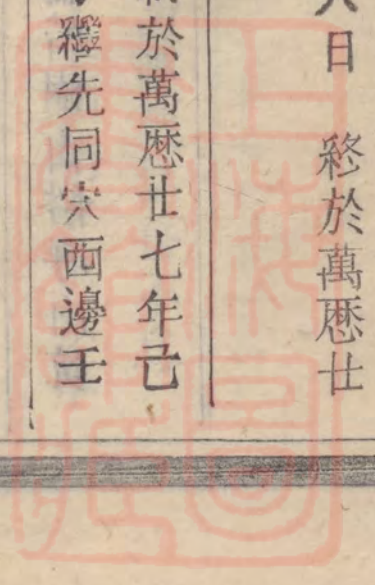 八日　終於萬厯廿
於萬厯廿七年己
繼先同穴西邊壬